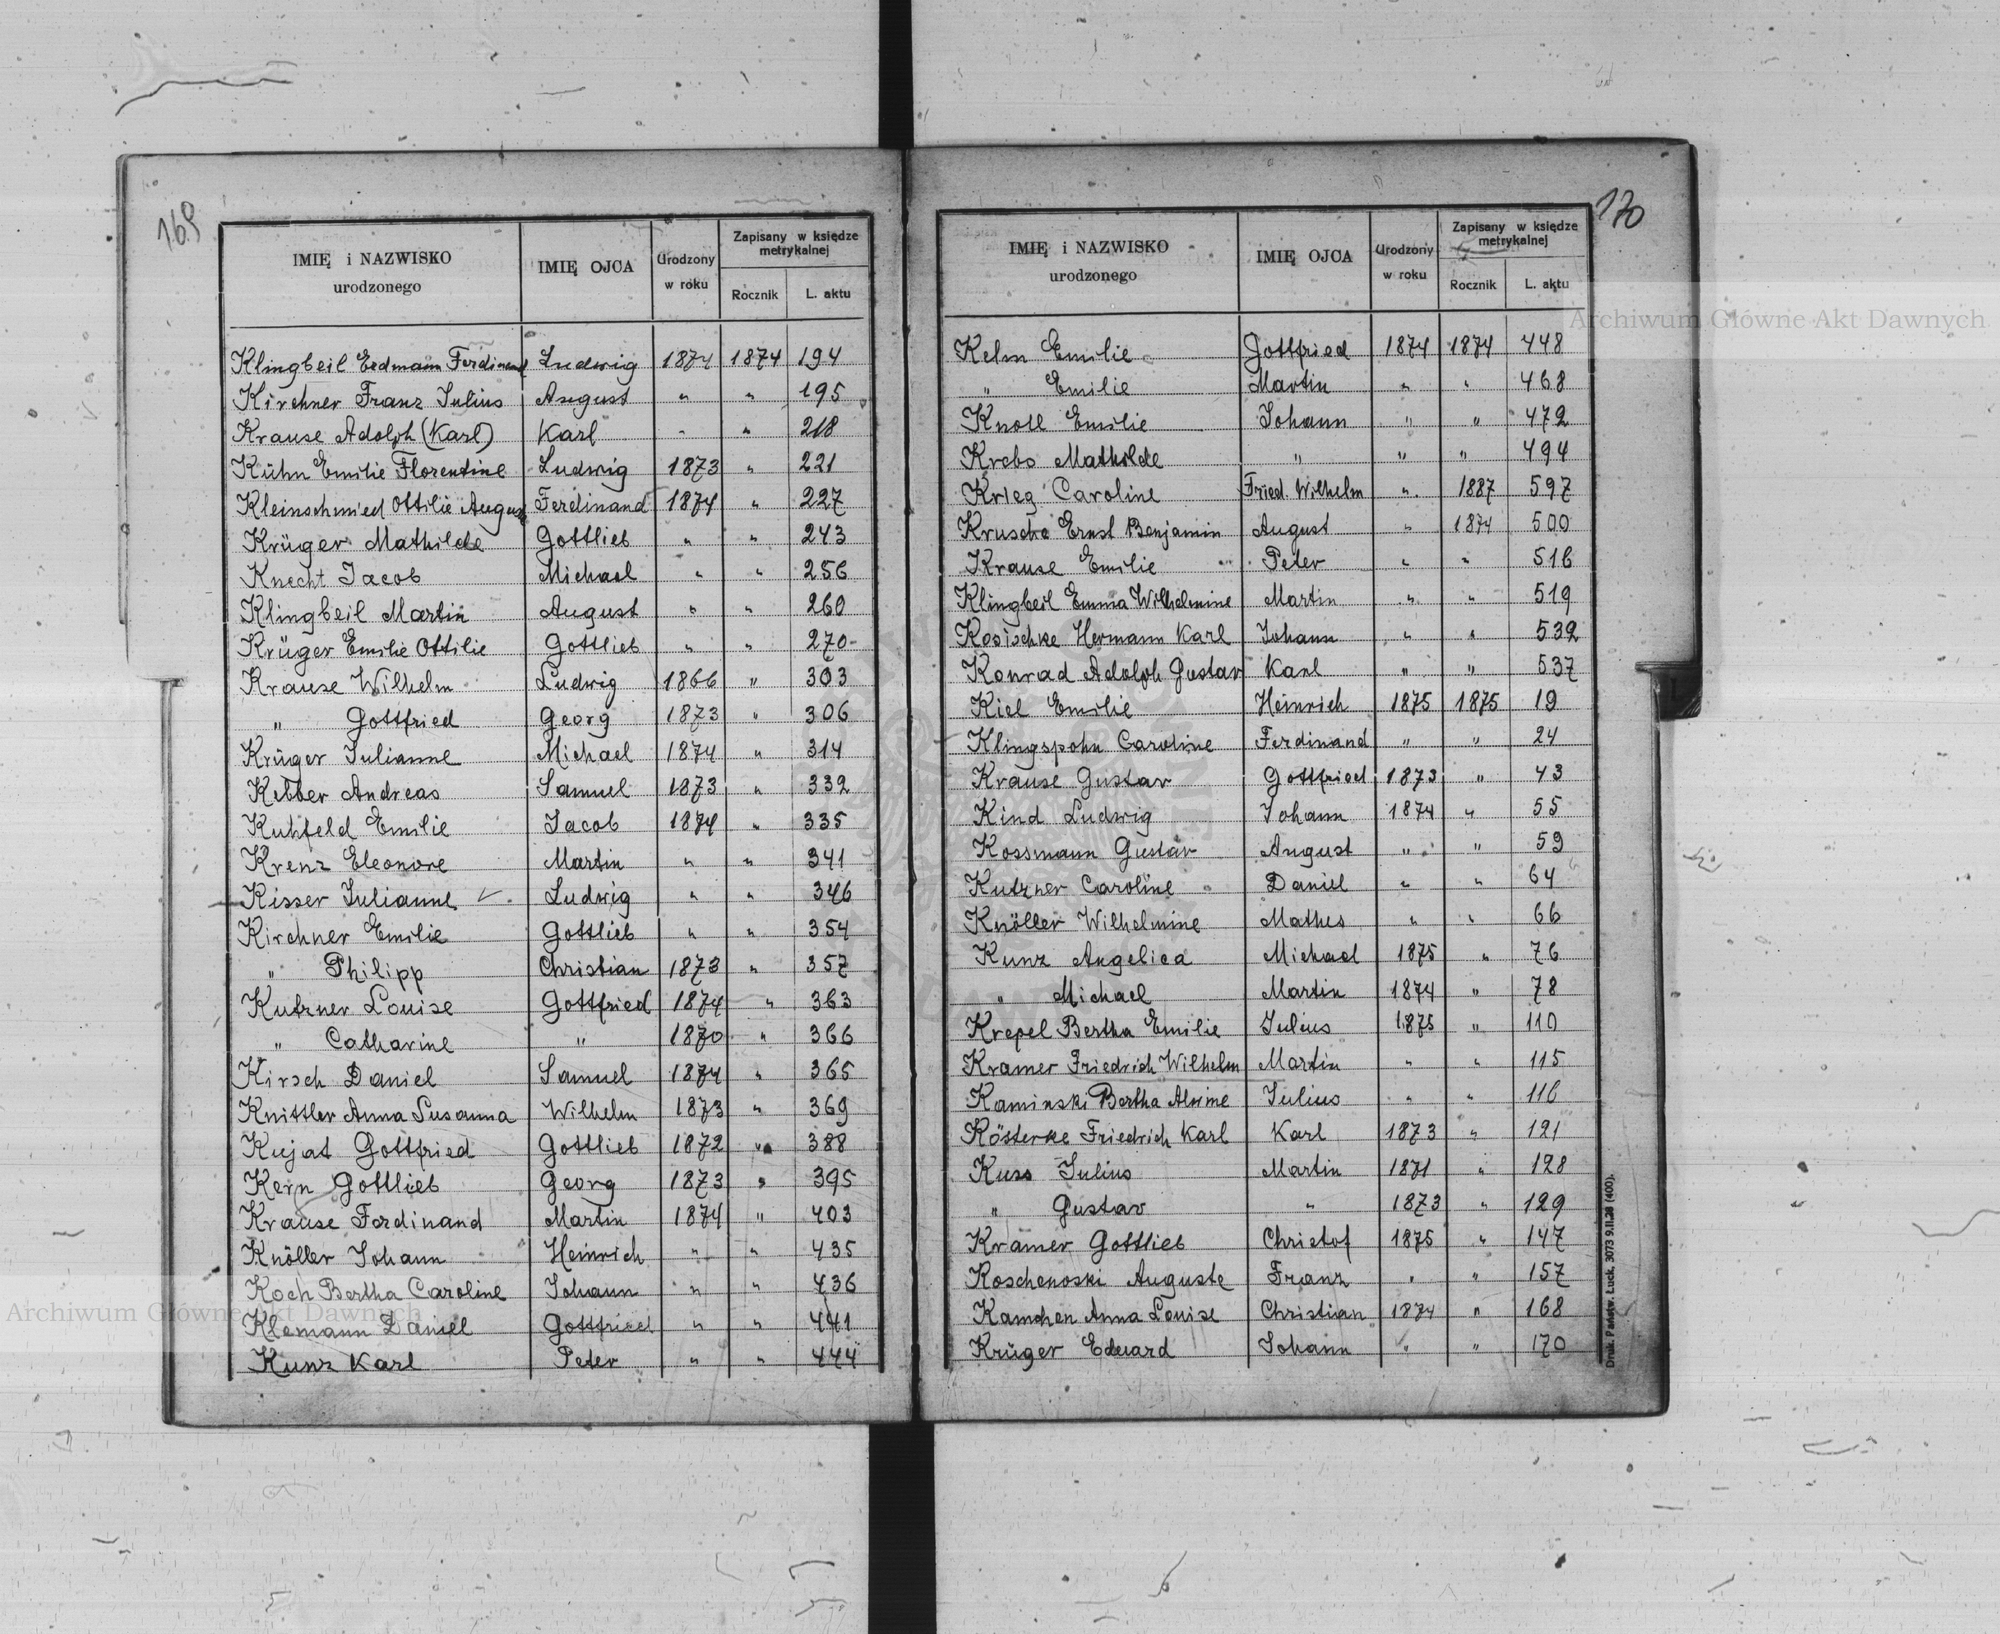 169
IMIĘ i NAZWISKO urodzonego IMIĘ OJCA Urodzony w roku Zapisany w księdze metrykalnej Rocznik L. aktu
Klingbeil Erdmann Ferdinand Ludwig 1874 1874 194
Kirchner Franz Julius August " " 195
Krause Adolph (Karl) Karl " " 218
Kühn Emilie Florentine Ludwig 1873 " 221
Kleinschmied Ottilie Auguste Ferdinand 1874 " 227
Krüger Mathilde Gottlieb " " 243
Knecht Jacob Michael " " 256
Klingbeil Martin August " " 260
Krüger Emilie Ottilie Gottlieb " " 270
Krause Wilhelm Ludwig 1866 " 303
" Gottfried Georg 1873 " 306
Krüger Julianne Michael 1874 " 314
Kebber Andreas Samuel 1873 " 332
Kuhfeld Emilie Jacob 1874 " 335
Krenz Eleonore Martin " " 341
Kisser Julianne Ludwig " " 346
Kirchner Emilie Gottlieb " " 354
" Philipp Christian 1873 " 357
Kutzner Louise Gottfried 1874 " 363
" Catharine " 1870 " 366
Kirsch Daniel Samuel 1874 " 365
Knittler Anna Susanna Wilhelm 1873 " 369
Kujat Gottfried Gottlieb 1872 " 388
Kern Gottlieb Georg 1873 " 395
Krause Ferdinand Martin 1874 " 403
Knöller Johann Heinrich " " 435
Koch Bertha Caroline Johann " " 436
Klemann Daniel Gottfried " " 441
Kunz Karl Peter " " 444
170
IMIĘ i NAZWISKO urodzonego IMIĘ OJCA Urodzony w roku Zapisany w księdze metrykalnej Rocznik L. aktu
Kelm Emilie Gottfried 1874 1874 448
" Emilie Martin " " 468
Knoll Emilie Johann " " 472
Krebs Mathilde " " " 494
Krieg Caroline Fried. Wilhelm " 1887 597
Krusche Ernst Benjamin August " 1874 500
Krause Emilie Peter " " 516
Klingbeil Emma Wilhelmine Martin " " 519
Kosischke Hermann Karl Johann " " 532
Konrad Adolph Gustav Karl " " 537
Kiel Emilie Heinrich 1875 1875 19
Klingspohn Caroline Ferdinand " " 24
Krause Gustav Gottfried 1873 " 43
Kind Ludwig Johann 1874 " 55
Kossmann Gustav August " " 59
Kutzner Caroline Daniel " " 64
Knöller Wilhelmine Mathes " " 66
Kunz Angelica Michael 1875 " 76
" Michael Martin 1874 " 78
Krepel Bertha Emilie Julius 1875 " 110
Kramer Friedrich Wilhelm Martin " " 115
Kaminski Bertha Alvine Julius " " 116
Kösterke Friedrich Karl Karl 1873 " 121
Kuss Julius Martin 1871 " 128
" Gustav " 1873 " 129
Krämer Gottlieb Christof 1875 " 147
Koschenoski Auguste Franz " " 157
Kamchen Anna Louise Christian 1874 " 168
Krüger Eduard Johann " " 170
Druk. Państw. Łuck. 3073 9.II.28 (400).
Archiwum Główne Akt Dawnych
Archiwum Główne Akt Dawnych